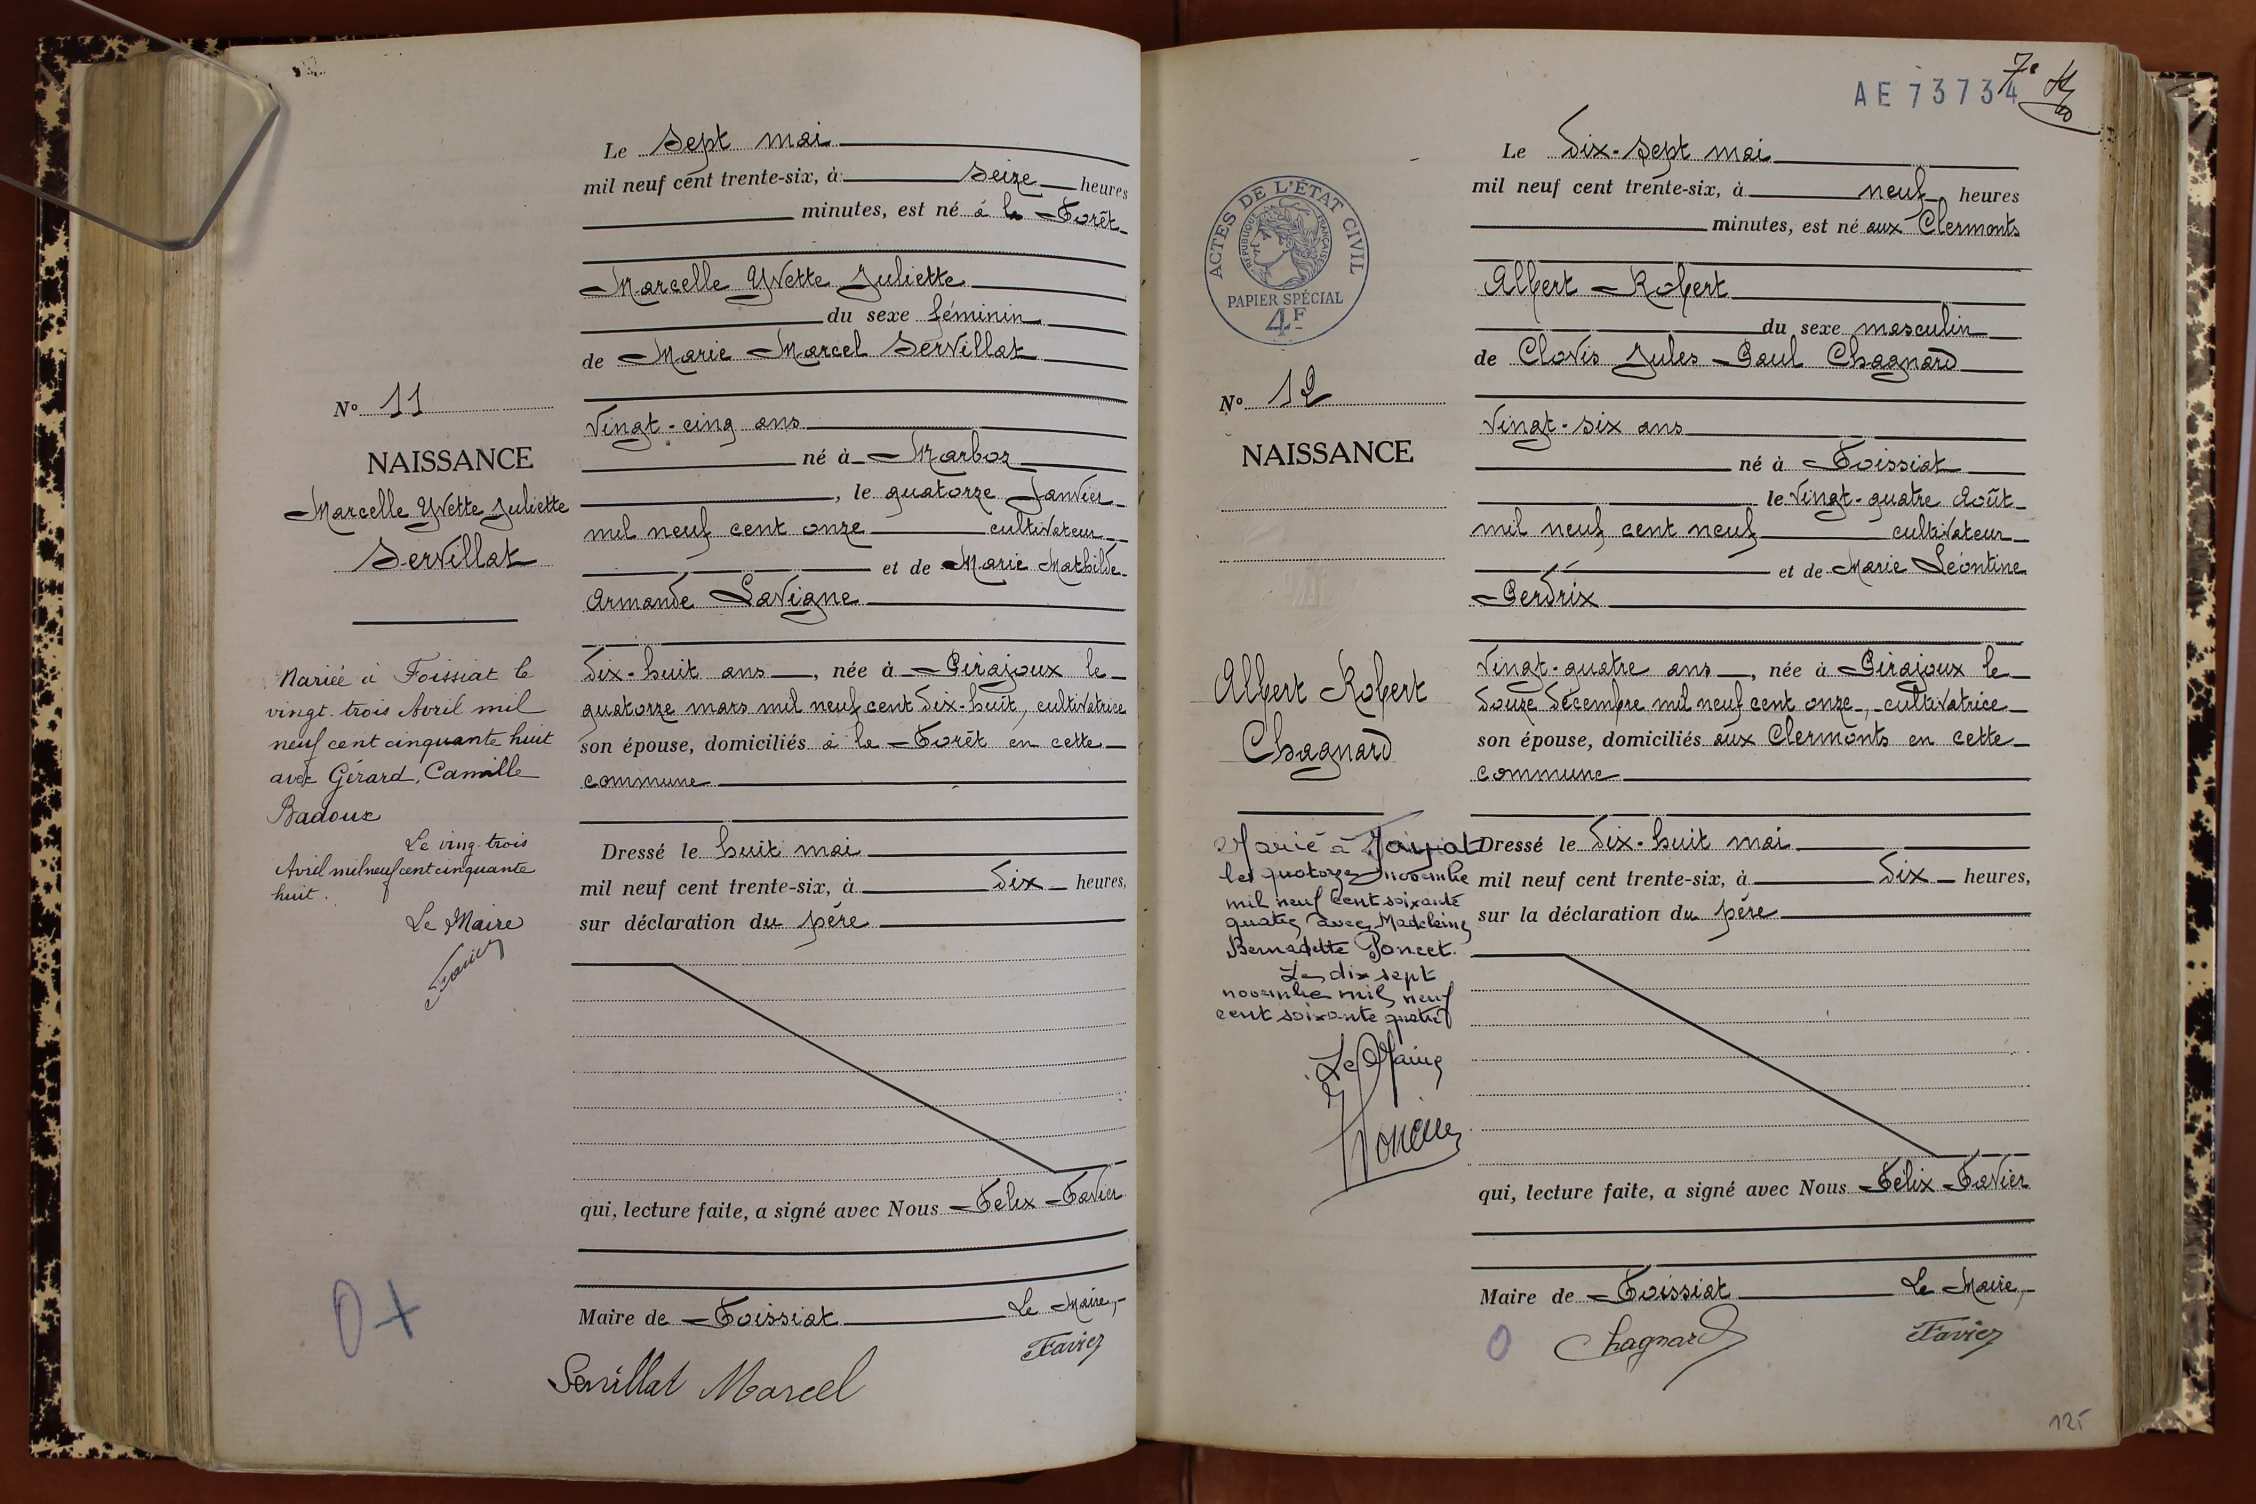 Le Sept mai
mil neuf cent trente-six, à seize heures
minutes, est né à la Forêt
Marcelle Yvette Juliette
du sexe féminin
de Marie Marcel Servillat
vingt-cinq ans
né à Marboz
, le quatorze Janvier
mil neuf cent onze cultivateur
et de Marie Mathilde
Armande Lavigne
dix-huit ans, née à Pirajoux le
quatorze mars mil neuf cent dix-huit, cultivatrice
son épouse, domiciliés à la Forêt en cette
commune
Dressé le huit mai
mil neuf cent trente-six, à dix heures,
sur déclaration du père
qui, lecture faite, a signé avec Nous Félix Favier
Maire de Foissiat Le Maire,
Favier
Servillat Marcel
N° 11
NAISSANCE
Marcelle Yvette Juliette
Servillat
Mariée à Foissiat le
vingt-trois Avril mil
neuf cent cinquante huit
avec Gérard, Camille
Badoux
Le ving trois
Avril mil neuf cent cinquante
huit.
Le Maire
Favier
0+
AE 73734
7e
Le Dix-sept mai
mil neuf cent trente-six, à neuf heures
minutes, est né aux Clermonts
Albert Robert
du sexe masculin
de Clovis Jules Paul Chagnard
vingt-six ans
né à Foissiat
le vingt-quatre Août
mil neuf cent neuf cultivateur
et de Marie Léontine
Perdrix
vingt-quatre ans, née à Pirajoux le
douze décembre mil neuf cent onze, cultivatrice
son épouse, domiciliés aux Clermonts en cette
commune
Dressé le dix-huit mai
mil neuf cent trente-six, à dix heures,
sur la déclaration du père
qui, lecture faite, a signé avec Nous Félix Favier
Maire de Foissiat Le Maire,
0 Chagnard Favier
ACTES DE L'ÉTAT CIVIL
RÉPUBLIQUE FRANÇAISE
PAPIER SPÉCIAL
4F
N° 12
NAISSANCE
Albert Robert
Chagnard
Marié à Jayat
le quatorze novembre
mil neuf cent soixante
quatre avec Madeleine
Bernadette Poncet.
Le dix sept
novembre mil neuf
cent soixante quatre
Le Maire
125